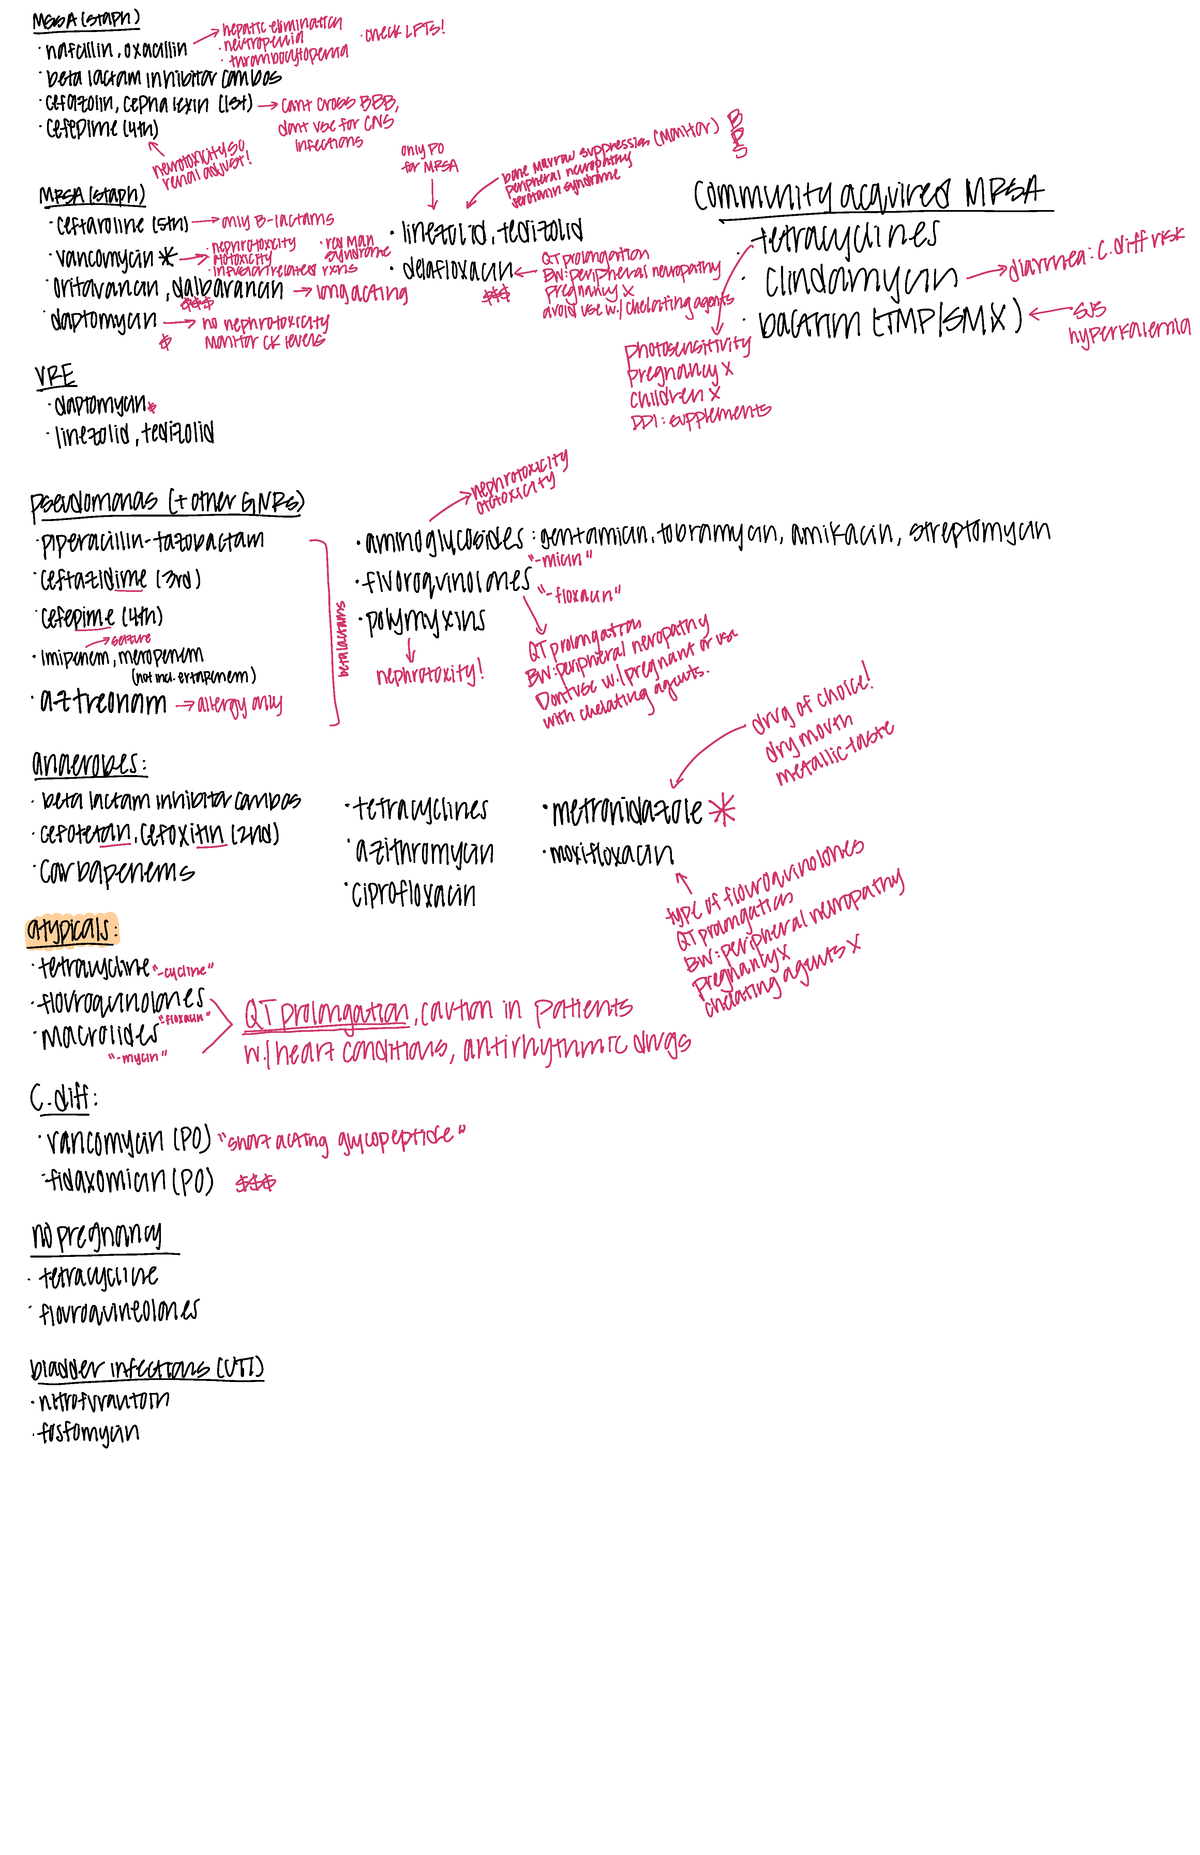 MSSA (staph)
· nafcillin, oxacillin
· hepatic elimination
· neutropenia
· thrombocytopenia
· check LFTs!
· beta lactam inhibitor combos
· cefazolin, cephalexin (1st)
cant cross BBB,
dont use for CNS
infections
· cefepime (4th)
neurotoxicity so
renal adjust!
MRSA (staph)
· ceftaroline (5th)
only B-lactams
· vancomycin *
· nephrotoxicity
· ototoxicity
· infusion related rxns
· red man
syndrome
· oritavancin, dalbavancin
$$$
long acting
· daptomycin
$
no nephrotoxicity
monitor CK levels
only PO
for MRSA
bone marrow suppression (monitor)
peripheral neuropathy
serotonin syndrome
B
P
S
· linezolid, tedizolid
· delafloxacin
$$$
QT prolongation
BW: peripheral neuropathy
pregnancy X
avoid use w/ chelating agents
community acquired MRSA
· tetracyclines
· clindamycin
diarrhea: C.diff risk
· bactrim (TMP/SMX)
SJS
hyperkalemia
photosensitivity
pregnancy X
children X
DDI: supplements
VRE
· daptomycin *
· linezolid, tedizolid
pseudomonas (+ other GNRs)
· piperacillin-tazobactam
· ceftazidime (3rd)
· cefepime (4th)
seizure
· imipenem, meropenem
(not incl. ertapenem)
· aztreonam
allergy only
beta lactams
nephrotoxicity
ototoxicity
· aminoglycosides: gentamicin, tobramycin, amikacin, streptomycin
"-micin"
· fluoroquinolones
"-floxacin"
· polymyxins
nephrotoxity!
QT prolongation
BW: peripheral neropathy
Dont use w/ pregnant or use
with chelating agents.
anaerobes:
· beta lactam inhibitor combos
· cefotetan, cefoxitin (2nd)
· carbapenems
· tetracyclines
· azithromycin
· ciprofloxacin
· metronidazole *
drug of choice!
dry mouth
metallic taste
· moxifloxacin
type of flouroquinolones
QT prolongation
BW: peripheral neuropathy
pregnancy X
chelating agents X
atypicals:
· tetracycline "-cycline"
· flouroquinolones
"-floxacin"
· macrolides
"-mycin"
QT prolongation, caution in patients
w/ heart conditions, antirhythmic drugs
C.diff:
· vancomycin (PO) "short acting glycopeptide"
· fidaxomicin (PO) $$$
no pregnancy
· tetracycline
· flouroquineolones
bladder infections (UTI)
· nitrofurantoin
· fosfomycin